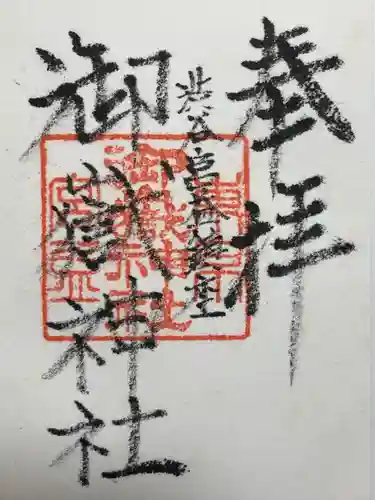 奉拝
渋谷宮益鎮座
御嶽神社